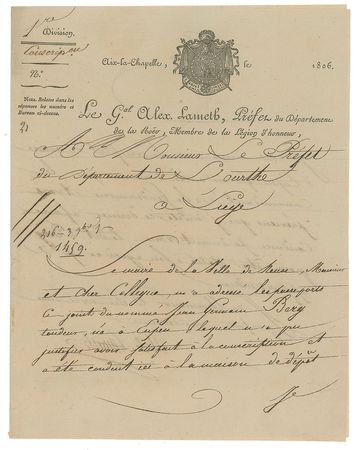 1re Division.
Conscription
No.
Aix-la-Chapelle, le 1806.
Nota. Relater dans les
réponses les numéro et
Bureau ci-dessus.
Le Gal Alex. Lameth, Préfet du Département
de la Roër, Membre de la Légion d'honneur,
A Monsieur Le Préfet
du Département de L'ourthe
a Liège
1459.
Le maire de la Ville de Monsieur
et cher Collègue, m'a adressé les passeports
ci joints du nommé Jean Germain Berg
tondeur, né à Eupen lequel n'a pu
justifier avoir satisfait à la conscription et
a été conduit ici à la maison de dépôt
Je